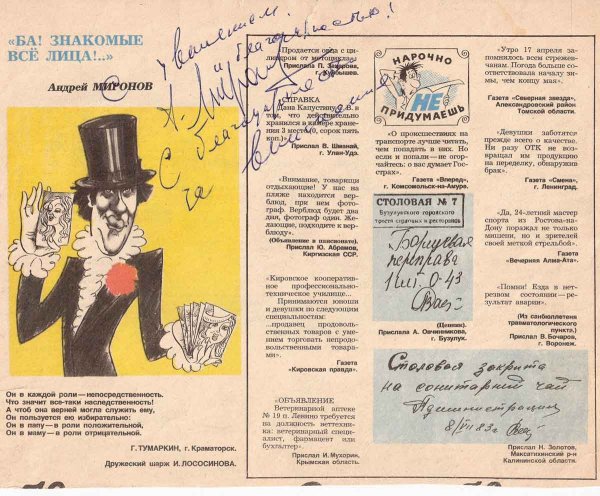 «БА! ЗНАКОМЫЕ
ВСЁ ЛИЦА!..»
Андрей МИРОНОВ
С уважением
и благодарностью!
А. Миронов
С благодарностью
за
Он в каждой роли — непосредственность.
Что значит все-таки наследственность!
А чтоб она верней могла служить ему,
Он пользуется ею избирательно:
Он в папу — в роли положительной,
Он в маму — в роли отрицательной.
Г. ТУМАРКИН, г. Краматорск.
Дружеский шарж И. ЛОСОСИНОВА.
«Продается оса с ци-
линдром от мотоцикла».
Прислал П.
г. Куйбышев.
«СПРАВКА
Дана Капустину В. В.
в том, что действительно
хранился в камере хране-
ния 3 места (0, сорок пять
коп.)».
Прислал В. Шманай,
г. Улан-Удэ.
«Внимание, товарищи
отдыхающие! У нас на
пляже находится вер-
блюд, при нем фото-
граф. Верблюд будет два
дня, фотограф один. Же-
лающие, подходите к вер-
блюду».
(Объявление в пансионате).
Прислал Ю. Абрамов,
Киргизская ССР.
«Кировское кооператив-
ное профессионально-
техническое училище...
Принимаются юноши
и девушки по следующим
специальностям:
...продавец продоволь-
ственных товаров с уме-
нием торговать непродо-
вольственными товара-
ми».
Газета
«Кировская правда».
«ОБЪЯВЛЕНИЕ
Ветеринарной аптеке
№ 19 п. Ленино требуется
на должность веттехни-
ка: ветеринарный специа-
лист, фармацевт или
бухгалтер».
Прислал И. Мухорин,
Крымская область.
НАРОЧНО
НЕ
ПРИДУМАЕШЬ
«О происшествиях на
транспорте лучше читать,
чем попадать в них. Но
если и попали — не огор-
чайтесь: о вас думает Гос-
страх».
Газета «Вперед»,
г. Комсомольск-на-Амуре.
СТОЛОВАЯ № 7
Бузулукского городского
треста столовых и ресторанов
Борщевая
переправа
1 шт. 0-43
(Ценник).
Прислала А. Овчинникова,
г. Бузулук.
«Утро 17 апреля за-
помнилось всем стрежев-
чанам. Погода больше со-
ответствовала началу зи-
мы, чем концу мая».
Газета «Северная звезда»,
Александровский район
Томской области.
«Девушки заботятся
прежде всего о качестве.
Ни разу ОТК не возвра-
щал им продукцию
на переделку, обнаружив
брак».
Газета «Смена»,
г. Ленинград.
«Да, 24-летний мастер
спорта из Ростова-на-
Дону поражал не только
мишени, но и зрителей
своей меткой стрельбой».
Газета
«Вечерняя Алма-Ата».
«Помни! Езда в нет-
резвом состоянии — ре-
зультат аварии».
(Из санбюллетеня
травматологического
пункта.)
Прислал В. Бочаров,
г. Воронеж.
Столовая закрыта
на санитарный чай
Администрация
8/VII 83 г.
Прислал Н. Золотов,
Максатихинский р-н
Калининской области.